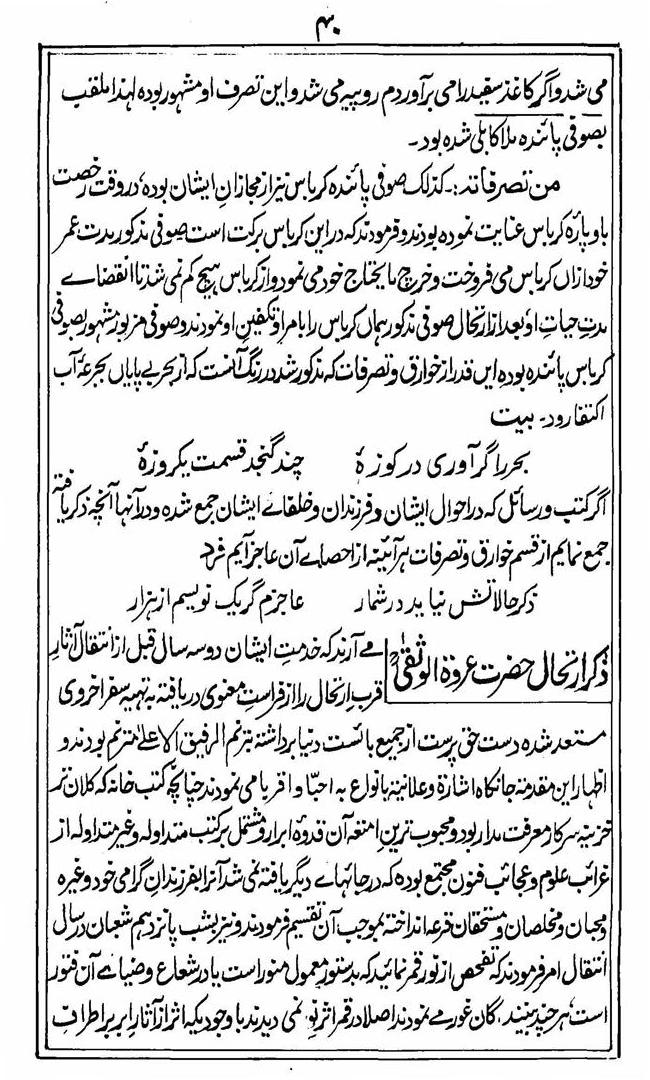 ۴۰
می شد و اگر کاغذ سفید را می برآوردم روپیه می شد و این تصرف او مشهور بوده لهذا ملقب
بصوفی پائنده ملا کابلی شده بود۔
من تصرفاته:۔ کذلک صوفی پائنده کرباس نیز از مجازان ایشان بوده، در وقت رخصت
باو پاره کرباس عنایت نموده بودند و فرمودند که در این کرباس برکت است صوفی مذکور مدت عمر
خود ازان کرباس می فروخت و خرچ ما یحتاج خود می نمود و از کرباس هیچ کم نمی شد تا انقضاے
مدت حیات او، بعد از ارتحال صوفی مذکور همان کرباس را بامر او تکفین او نمودند و صوفی مزبور مشهور بصوفی
کرباس پائنده بوده این قدر از خوارق و تصرفات که مذکور شد در رنگ آنست که از بحر بے پایاں بجرعۂ آب
اکتفا رود۔ بیت
بحر را گر آوری در کوزۂ چند گنجد قسمت یکروزۂ
اگر کتب و رسائل که در احوال ایشان و فرزندان و خلفاے ایشان جمع شده و در آنها آنچه ذکر یافته
جمع نمایم از قسم خوارق و تصرفات هر آئینه از احصاے آن عاجز آیم فرد
ذکر حالاتش نیاید در شمار عاجزم گر یک نویسم از هزار
ذکر ارتحال حضرت عروة الوثقیٰ
مے آرند که خدمت ایشان دو سه سال قبل از انتقال آثار
قرب ارتحال را از فراست معنوی دریافته به تهیه سفر اخروی
مستعد شده دست حق پرست از جمیع بائست دنیا برداشته بترنم الرفیق الاعلے مترنم بودند و
اظهار این مقدمه جانکاه اشارة و علانیة بانواع به احبا و اقربا می نمودند چنانچه کتب خانه که کلان تر
خزینه سرکار معرفت مدار بود و محبوب ترین امتعه آن قدوه ابرار و مشتمل بر کتب متداوله و غیر متداوله از
غرائب علوم و عجائب فنون مجتمع بوده که در جاهاے دیگر یافته نمی شد آنرا بفرزندان گرامی خود و غیره
و محبان و مخلصان و مستحقان قرعه انداخته بموجب آن تقسیم فرمودند و نیز بشب پانزدهم شعبان در سال
انتقال امر فرمودند که تفحص از نور قمر نمائید که بدستور معمول منور است یا در شعاع و ضیاے آن فتور
است، هر چند بینند، کان غور مے نمودند اصلا در قمر اثر نور نمی دیدند با وجودیکه اثر از آثار ابر بر اطراف